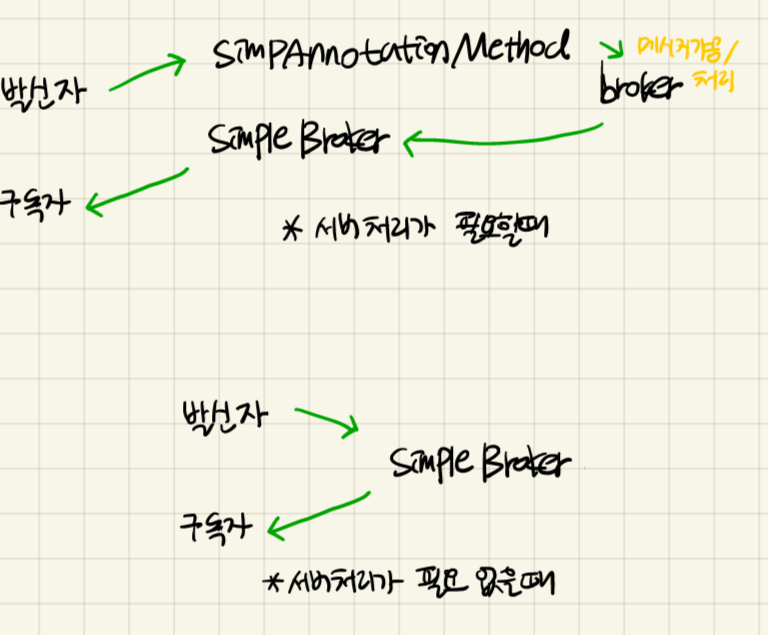 SimPAnnotationMethod
메시지가공/
처리
발신자
broker
Simple Broker
구독자
* 서버처리가 필요할때
발신자
Simple Broker
구독자
* 서버처리가 필요 없을때